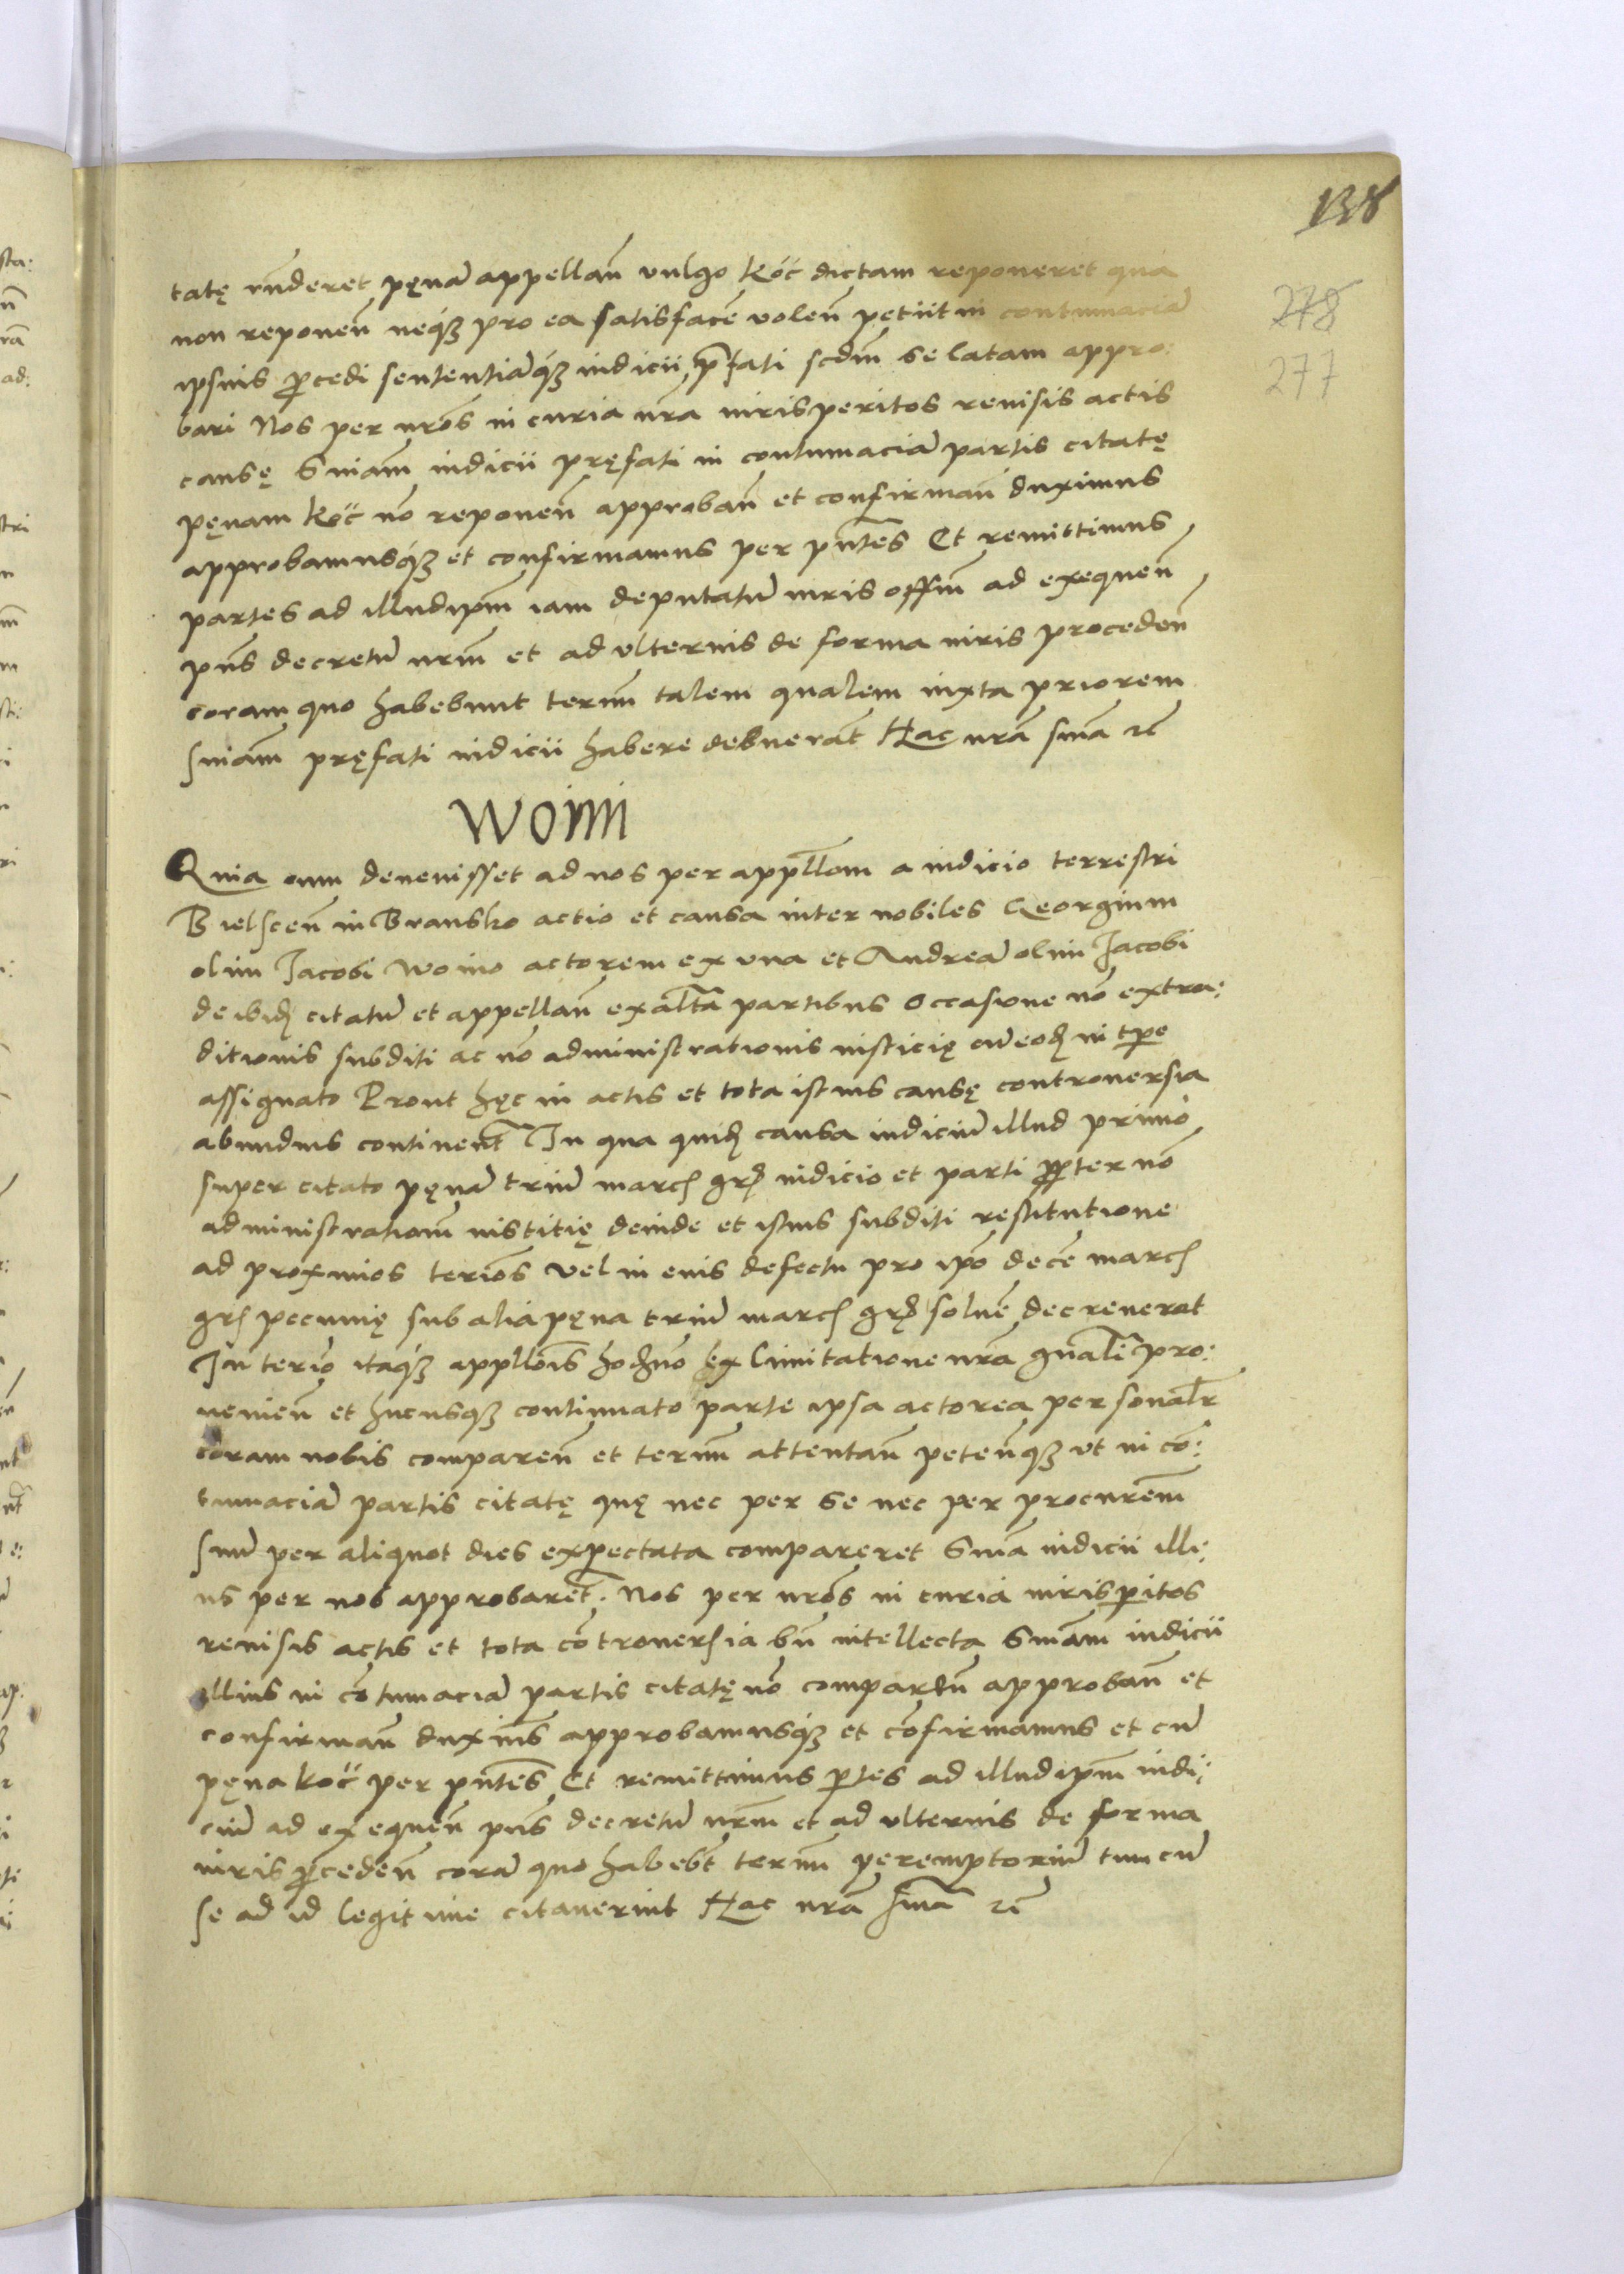 138
278
277
tatę rñderet pęnã appellañ vulgo Koc̈ dictam reponeret qua
non reponeñ neq́ꝫ pro ea satisfacẽ voleñ petiit in contumaciã
ipsius ꝓcedi sententiãq́ꝫ iudicii p̃fati scdm̃ se latam appro:
bari Nos per nr̃os in curia nr̃a iurisperitos reuisis actis
causę Sniam̃ iudicii pręfati in contumaciã partis citatę
pęnam Koc̈ nõ reponeñ approbañ et confirmañ duximus
approbamusq́ꝫ et confirmamus per pñtes Et remittimus
partes ad illudipm̃ iam deputatũ iuris offim̃ ad exequeñ
pñs decretũ nrm̃ et ad vlterius de forma iuris procedeñ
coram quo habebunt termĩ talem qualem iuxta priorem
sniam̃ pręfati iudicii habere debuerãt Hac nr̃a sniã ꝛc̃
Woini
Quia cum deuenisset ad nos per appllom̃ a iudicio terrestri
Bielsceñ in Bransko actio et causa inter nobiles Georgium
olim Jacobi Woino actorem ex vna et Andreã olim Jacobi
de ibid̨ citatũ et appellañ ex alt̃a partibus Occasione nõ extra:
ditionis subditi ac nõ administrationis iusticię cũ eod̨ in tp̃e
assignato Prout hęc in actis et tota istius causę controuersia
abundius continent̃ In qua quid̨ causa iudiciũ illud primo
super citato pęnã triũ march gr̃ iudicio et parti ꝓpter nõ
administrationm̃ iustitię deinde et istius subditi restitutione
ad proximos terĩos vel in eius defectu pro ipõ decẽ march
gr̃ pecunię sub alia pęna triũ march gr̃ soluẽ decreuerat
In terĩo itaq́ꝫ appllõis hodiernõ ex limitatione nr̃a gñali pro:
ueniẽn et hucusq́ꝫ continuato parte ipsa actorea personalr̃
coram nobis compareñ et termĩ attentañ peteñq́ꝫ vt in cõ:
tumaciã partis citatę quę nec per se nec per procurem̃
suũ per aliquot dies expectata compareret Sniã iudicii illi:
us per nos approbaret̃. Nos per nr̃os in curia iurisperitos
reuisis actis et tota cõtrouersia bñ intellecta Sniam̃ iudicii
illius in cõtumaciã partis citatę nõ compareñ approbañ et
confirmañ duxims̃ approbamusq́ꝫ et cõfirmamus et cũ
pęna Koc̈ per pñtes Et remittimus p̃tes ad illudipm̃ iudi:
ciũ ad exequeñ pñs decretũ nrm̃ et ad vlterius de forma
iuris ꝓcedeñ corã quo habebt̃ termĩ peremptoriũ tum cũ
se ad id legitime citauerint Hac nr̃a sniã ꝛc̃